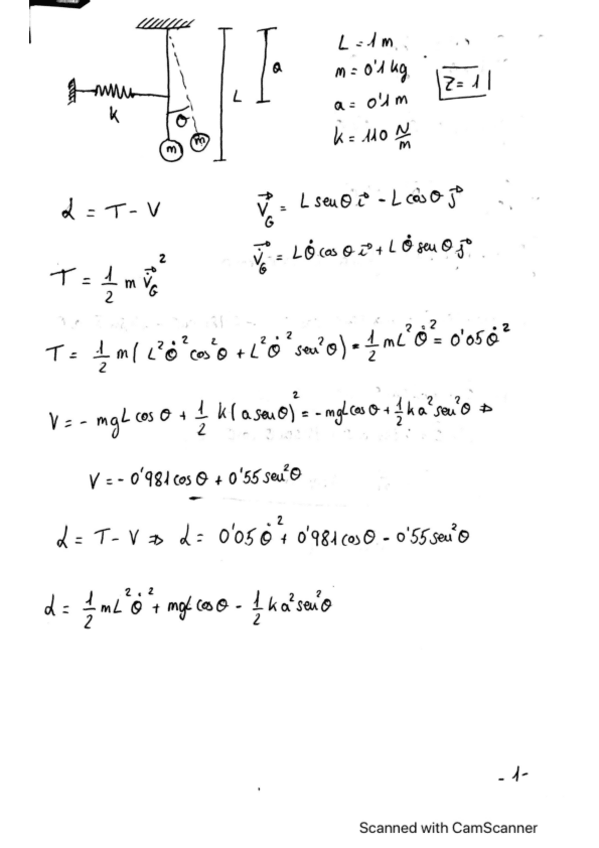 L = 1 m
m = 0'1 kg
Z = 1
a = 0'1 m
k = 110 N/m
k
θ
m
m
L
a
L = T - V
V⃗_G = L sen θ i⃗ - L cos θ j⃗
V̇⃗_G = L θ̇ cos θ i⃗ + L θ̇ sen θ j⃗
T = 1/2 m V̇⃗_G²
T = 1/2 m ( L² θ̇² cos² θ + L² θ̇² sen² θ ) = 1/2 m L² θ̇² = 0'05 θ̇²
V = - mgL cos θ + 1/2 k ( a sen θ )² = - mgL cos θ + 1/2 k a² sen² θ ⇒
V = - 0'981 cos θ + 0'55 sen² θ
L = T - V ⇒ L = 0'05 θ̇² + 0'981 cos θ - 0'55 sen² θ
L = 1/2 m L² θ̇² + mgL cos θ - 1/2 k a² sen² θ
- 1 -
Scanned with CamScanner